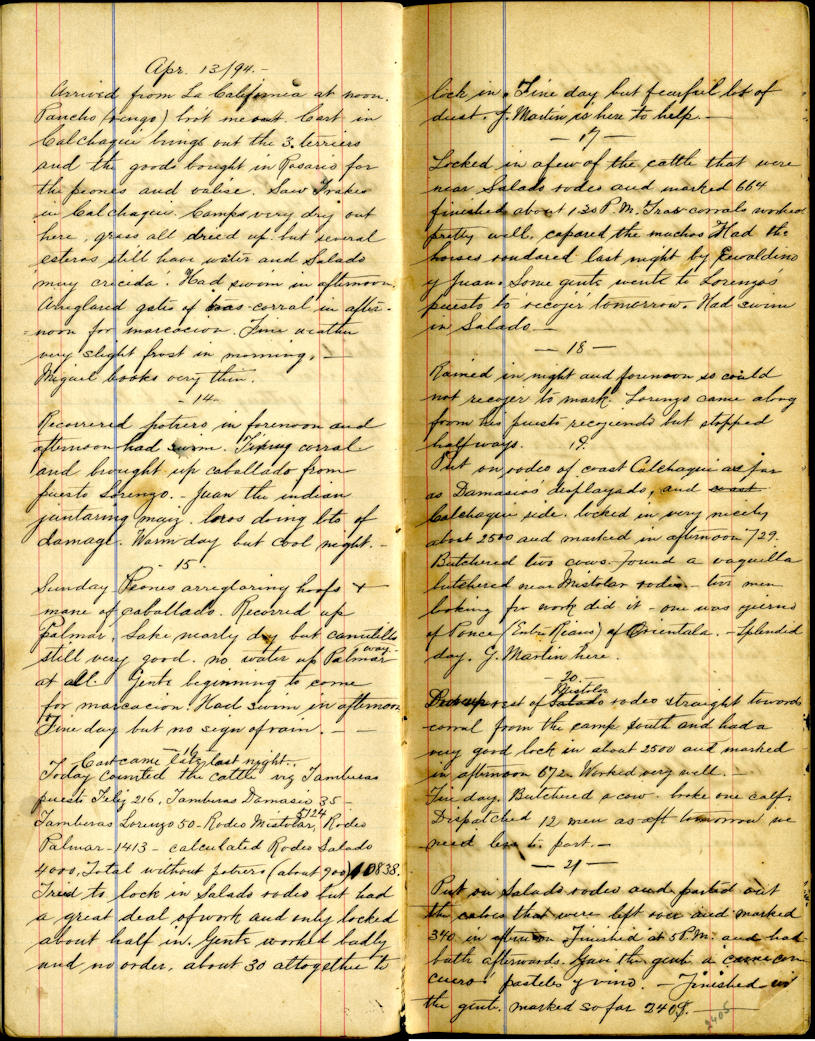 Apr. 13/94.-
Arrived from La California at noon.
Pancho (rengo) brot me out. Cart in
Calchaqui brings out the 3 terriers
and the goods bought in Rosario for
the peones and valise. Saw Frakes
in Calchaqui. Camps very dry out
here, grass all dried up. but several
esteros still have water and Salado
muy crecida! Had swim in afternoon.
Arreglared gates of bras-corral in after-
noon for marcacion. Fine weather
very slight frost in morning. —
Miguel looks very thin.
- 14 -
Recorrered potrero in forenoon and
afternoon had swim. Fixing corral
and brought up caballado from
puerto Lorenzo. - Juan the indian
juntaring maiz. loros doing lots of
damage. Warm day but cool night. -
- 15 -
Sunday. Peones arreglaring hoofs +
mane of caballado. Recorred up
Palmar. Lake nearly dry but canutillo
still very good. no water up Palmar way-
at all. Gente beginning to come
for marcacion. Had swim in afternoon
Fine day but no sign of rain. — —
- 16 -
Cart came late last night.
Today counted the cattle viz Tamberas
puesto Feliz 216, Tamberas Damasio 35 -
Tamberas Lorenzo 50 - Rodeo Mistolar 5124, Rodeo
Palmar - 1413 - calculated Rodeo Salado
4000, Total without potrero (about 900) 10838.
Tried to lock in Salado rodeo but had
a great deal of work and only locked
about half in. Gente worked badly
and no order, about 30 altogether to
lock in. Fine day but fearful lot of
dust. J. Martin is here to help. —
— 17 —
Locked in a few of the cattle that were
near Salado rodeo and marked 664
finished about 1.30 P.M. Tras corrals worked
pretty well. capared the machos. Had the
horses rondared last night by Ewaldino
y Juan. Some gente went to Lorenzo's
puesto to recojer tomorrow. Had swim
in Salado —
— 18 —
Rained in night and forenoon so could
not recojer to mark. Lorenzo came along
from his puesto recogiendo but stopped
halfways.
19.
Put on rodeo of coast Calchaqui as far
as Damasios' desplayado, and coast
Calchaqui side. locked in very nicely
about 2500 and marked in afternoon 729.
Butchered two cows. Found a vaquilla
butchered near Mistolar rodeo - two men
looking for work did it - one was yierno
of Ponce (Entre Riano) of Orientala. - Splended
day. G. Martin here.
- 20 -
rest of Mistolar Salado rodeo straight towards
corral from the camp south and had a
very good lock in about 2500 and marked
in afternoon 672. Worked very well. -
Fine day. Butchered a cow. broke one calf.
Dispatched 12 men as aft tomorrow we
need less to part. —
— 21 —
Put on Salado rodeo and parted out
the calves that were left over and marked
340 in afternoon. Finished at 5 P.M. and had
bath afterwards. Gave the gente a carne con
cuero! pasteles y vino. - Finished w/
the gente. marked so far 2405. —
2405